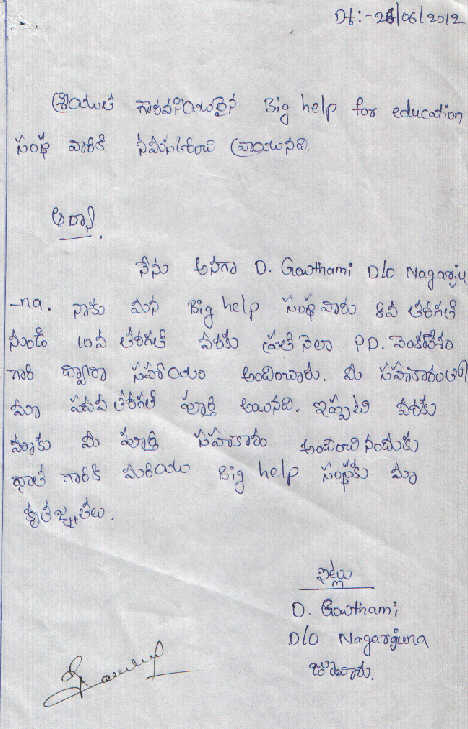 Dt:- 26/06/2012
శ్రీయుత గౌరవనీయులైన Big help for education
సంస్థ వారికి నమస్కరించి వ్రాయునది
ఆర్యా,
నేను అనగా D. Gowthami D/o Nagarju
-na. నాకు మన Big help సంస్థ వారు 8వ తరగతి
నుండి 10వ తరగతి వరకు ప్రతి నెలా P.D. వెంకటేశం
గారి ద్వారా సహాయం అందించారు. మీ సహకారంతో
మా పదవ తరగతి పూర్తి అయినది. ఇప్పటి వరకు
మాకు మీ పూర్తి సహకారం అందించినందుకు
దాత గారికి మరియు Big help సంస్థకు మా
కృతజ్ఞతలు.
ఇట్లు
D. Gowthami
D/o Nagarjuna